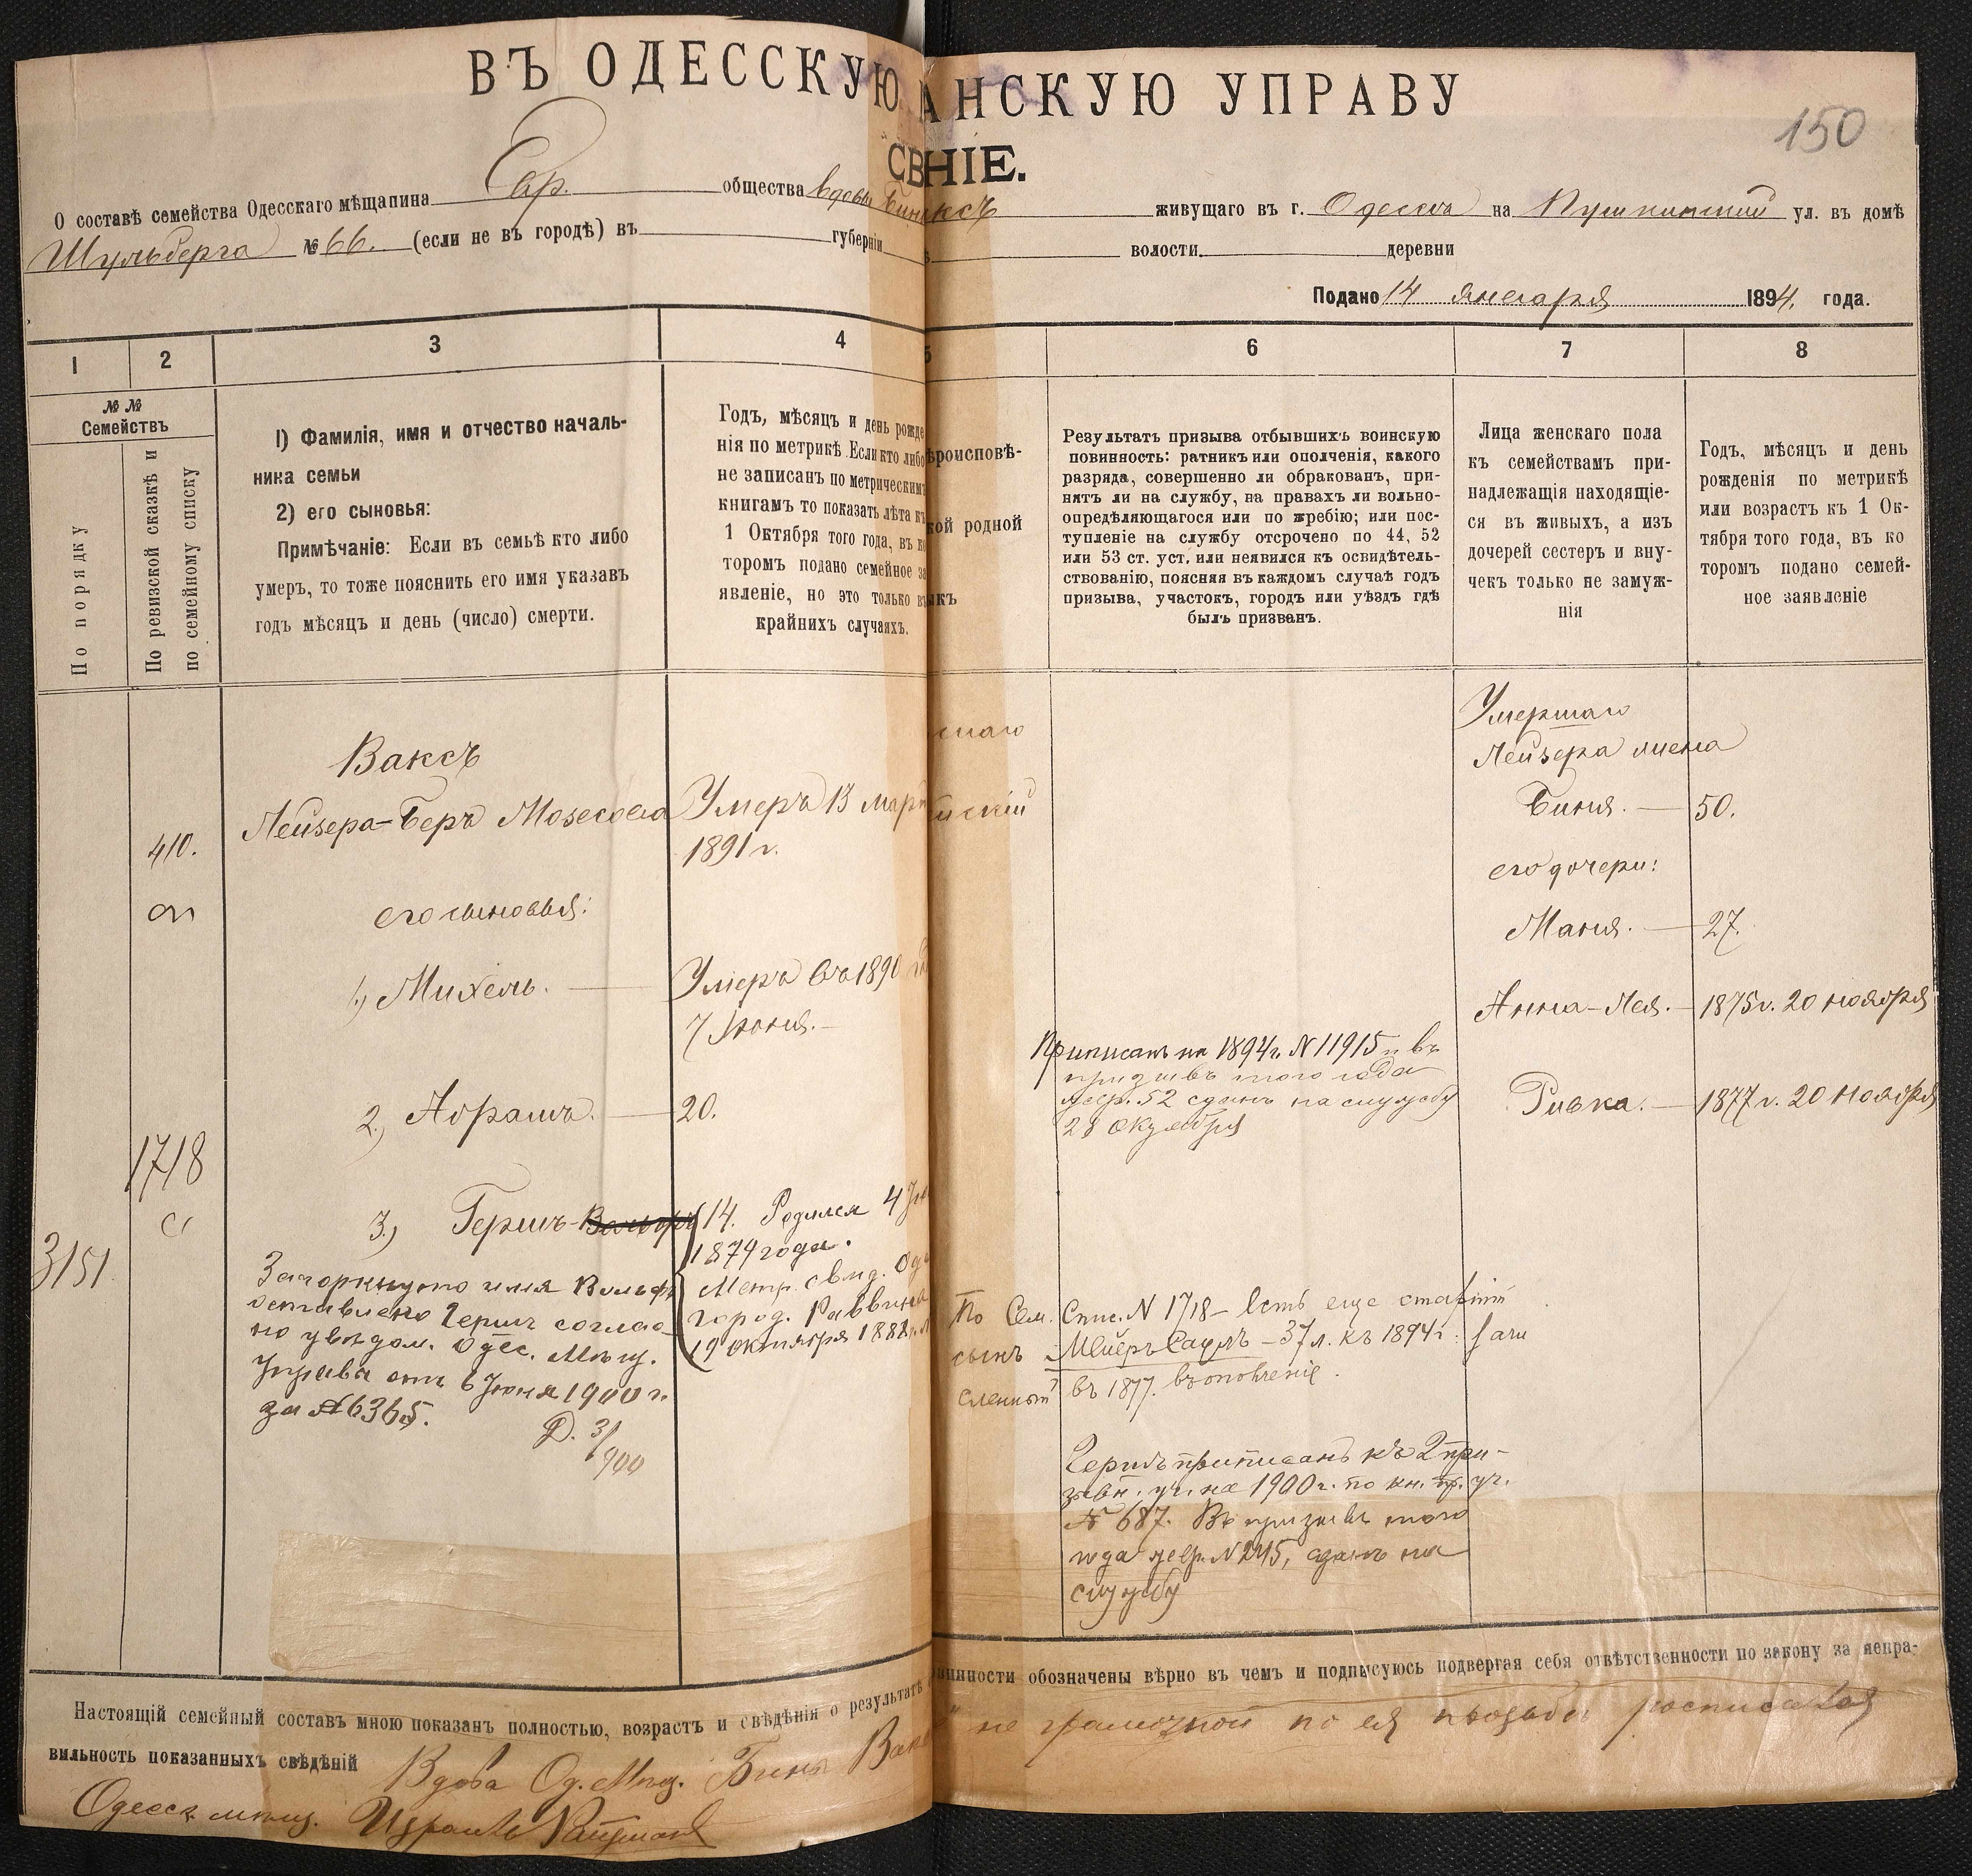 ВЪ ОДЕССКУЮ АНСКУЮ УПРАВУ
150
СВ НІЕ.
О составѣ семейства Одесскаго мѣщанина Евр. общества вдовы Бины Ваксъ живущаго въ г. Одесса на Пушкинской ул. въ домѣ
Шульберга № 66. (если не въ городѣ) въ губерніи волости деревни
Подано 14 января 1894. года.
1 2 3 4 5 6 7 8
№ № Семействъ
По порядку
По ревизской сказкѣ и по семейному списку
1) Фамилія, имя и отчество началь-
ника семьи
2) его сыновья:
Примѣчаніе: Если въ семьѣ кто либо
умеръ, то тоже пояснить его имя указавъ
годъ мѣсяцъ и день (число) смерти.
Годъ, мѣсяцъ и день рожде
нія по метрикѣ. Если кто либо
не записанъ по метрическимъ
книгамъ то показать лѣта къ
1 Октября того года, въ ко
торомъ подано семейное за
явленіе, но это только въ
крайнихъ случаяхъ.
ѣроисповѣ-
кой родной
ыкъ
Результатъ призыва отбывшихъ воинскую
повинность: ратникъ или ополченія, какого
разряда, совершенно ли обракованъ, при-
нятъ ли на службу, на правахъ ли вольно-
опредѣляющагося или по жребію; или пос-
тупленіе на службу отсрочено по 44, 52
или 53 ст. уст. или неявился къ освидѣтель-
ствованію, поясняя въ каждомъ случаѣ годъ
призыва, участокъ, городъ или уѣздъ гдѣ
былъ призванъ.
Лица женскаго пола
къ семействамъ при-
надлежащія находящіе-
ся въ живыхъ, а изъ
дочерей сестеръ и вну-
чекъ только не замуж-
нія
Годъ, мѣсяцъ и день
рожденія по метрикѣ
или возрастъ къ 1 Ок-
тября того года, въ ко
торомъ подано семей-
ное заявленіе
410.
1718
3151
Ваксъ
Лейзера-Беръ Мозесова
его сыновья:
1.) Михель.
2.) Абрамъ.
3.) Гершъ-Вольфъ
Зачеркнуто имя Вольфъ
оставлено Гершъ соглас-
но увѣдом. Одес. Мѣщ.
Управы отъ 6 Іюня 1900 г.
за № 6365.
Д. 3/900
Умеръ 13 март
1891 г.
Умеръ въ 1890 го
7 Іюня.
20.
14. Родился 4 Ію
1879 года.
Метр. свид. Од
город. Раввина
19 октября 1881 г.
Приписанъ на 1894 г. N 11915 и въ
призывъ того года
жер. 52 сданъ на службу
28 октября
По Сем. Спис. N 1718 - Есть еще старшій
сынъ Мейеръ Сауль - 37 л. къ 1894 г.
сленный въ 1877. въ ополченіе.
Гершъ приписанъ къ 2 при-
зывн. уч. на 1900 г. по кн. пр. уч.
№ 687. Въ призывъ того
года жер. N 245, сданъ на
службу
Умершаго
Лейзера жена
Биня. 50.
его дочери:
Маня. 27.
Анна-Лея. 1875 г. 20 ноября
Ривка. 1877 г. 20 Ноября
Настоящій семейный составъ мною показанъ полностью, возрастъ и свѣдѣнія о результатѣ инности обозначены вѣрно въ чемъ и подписуюсь подвергая себя отвѣтственности по закону за непра-
вильность показанныхъ свѣдѣній Вдова Од. Мѣщ. Бина Вакс не грамотной по ея просьбѣ росписался
Одесск. мѣщ. Израиль